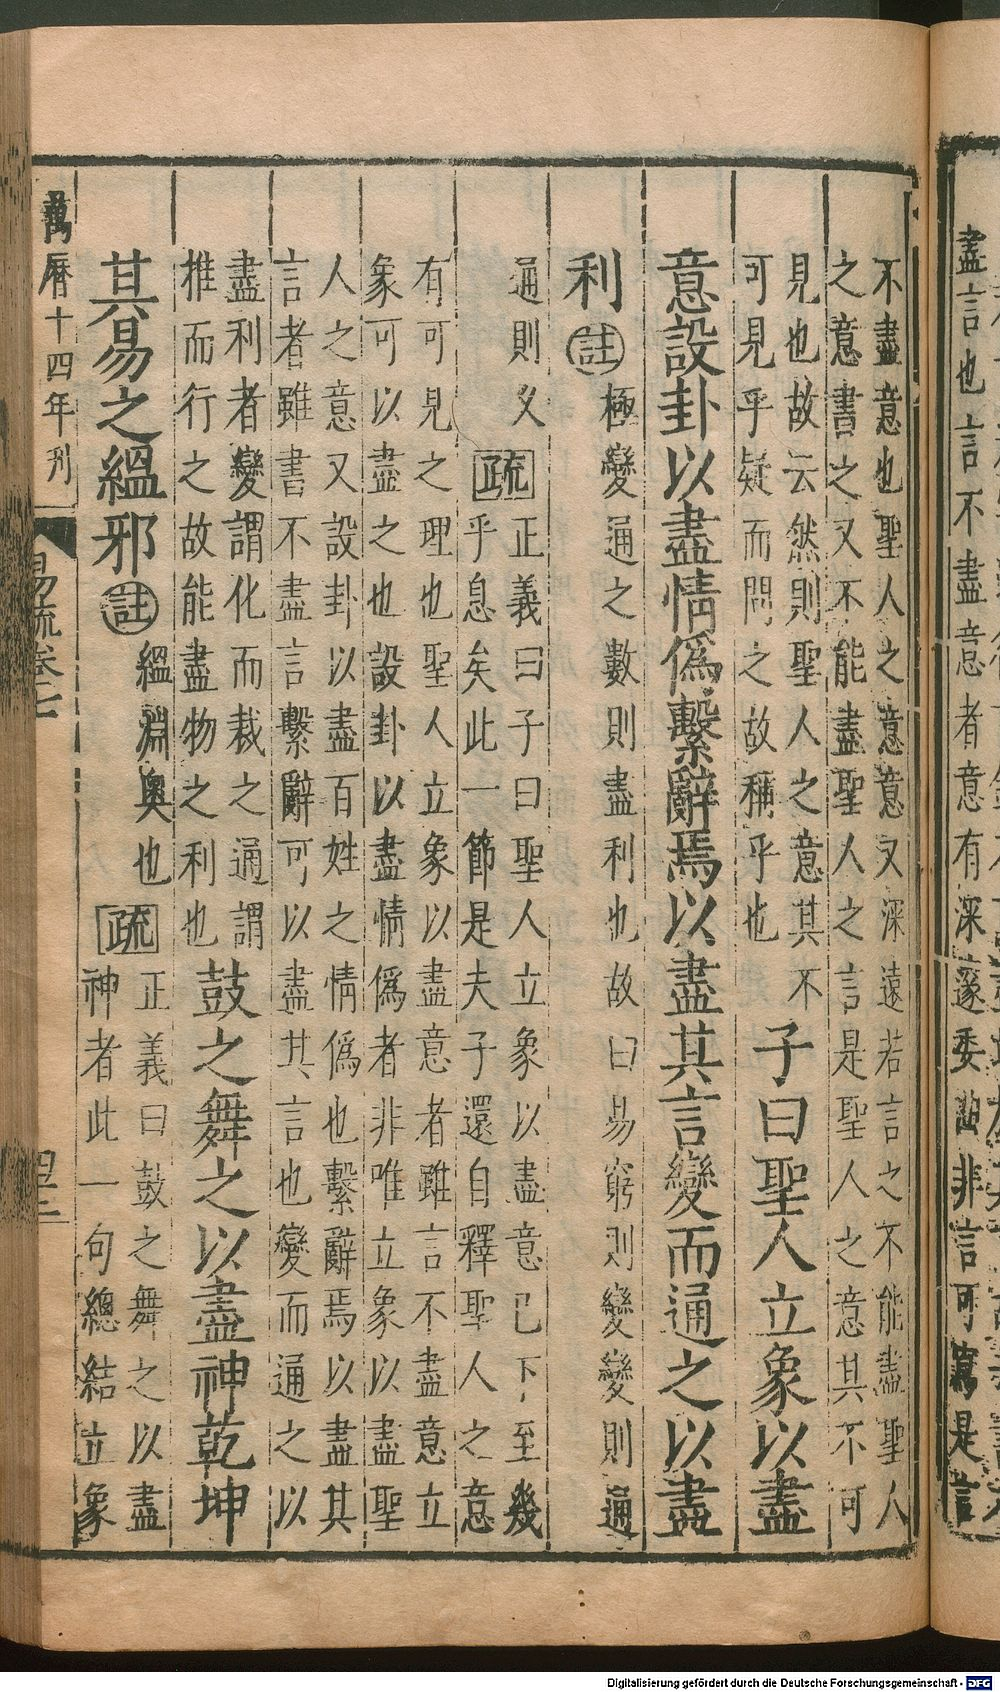 盡言也言不盡意者意有深邃委曲非言可寫是言
不盡意也聖人之意意又深遠若言之不能盡聖人
之意書之又不能盡聖人之言是聖人之意其不可
見也故云然則聖人之意其不
可見乎疑而問之故稱乎也
子曰聖人立象以盡
意設卦以盡情僞繫辭焉以盡其言變而通之以盡
利註極變通之數則盡利也故曰易窮則變變則通
通則乆
疏正義曰子曰聖人立象以盡意已下至幾
乎息矣此一節是夫子還自釋聖人之意
有可見之理也聖人立象以盡意者雖言不盡意立
象可以盡之也設卦以盡情僞者非唯立象以盡聖
人之意又設卦以盡百姓之情僞也繫辭焉以盡其
言者雖書不盡言繫辭可以盡其言也變而通之以
盡利者變謂化而裁之通謂
推而行之故能盡物之利也
鼓之舞之以盡神乾坤
其易之緼邪註緼淵奧也疏正義曰鼓之舞之以盡
神者此一句總結立象
萬曆十四年刋
易疏卷七
四十二
Digitalisierung gefördert durch die Deutsche Forschungsgemeinschaft - DFG